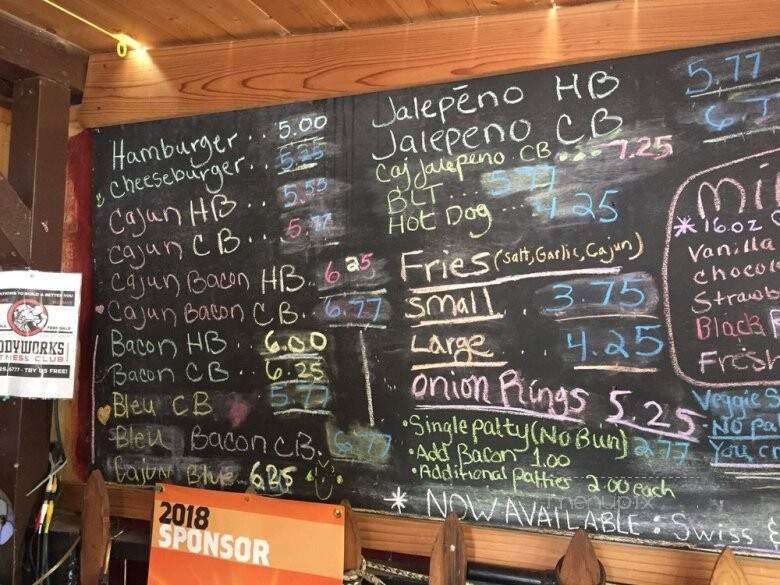 Hamburger.. 5.00
Cheeseburger.. 5.25
Cajun HB.. 5.55
Cajun CB.. 5.77
Cajun Bacon HB. 6.25
Cajun Bacon CB. 6.77
Bacon HB.. 6.00
Bacon CB.. 6.25
Bleu CB 5.77
Bleu Bacon CB. 6.77
Cajun Blue.. 6.25
Jalepēno HB 5.77
Jalepeno CB
Caj Jalapeno CB... 7.25
BLT... 5.77
Hot Dog... 4.25
Fries (Salt, Garlic, Cajun)
Small.. 3.75
Large... 4.25
Onion Rings 5.25
• Single patty (No Bun) 2.77
• Add Bacon 1.00
• Additional Patties 2.00 each
* NOW AVAILABLE: Swiss &
* 16oz
Vanilla
Black
Fresh
Veggie
NO
You
NESS CLUB
TRY US FREE!
2018
SPONSOR